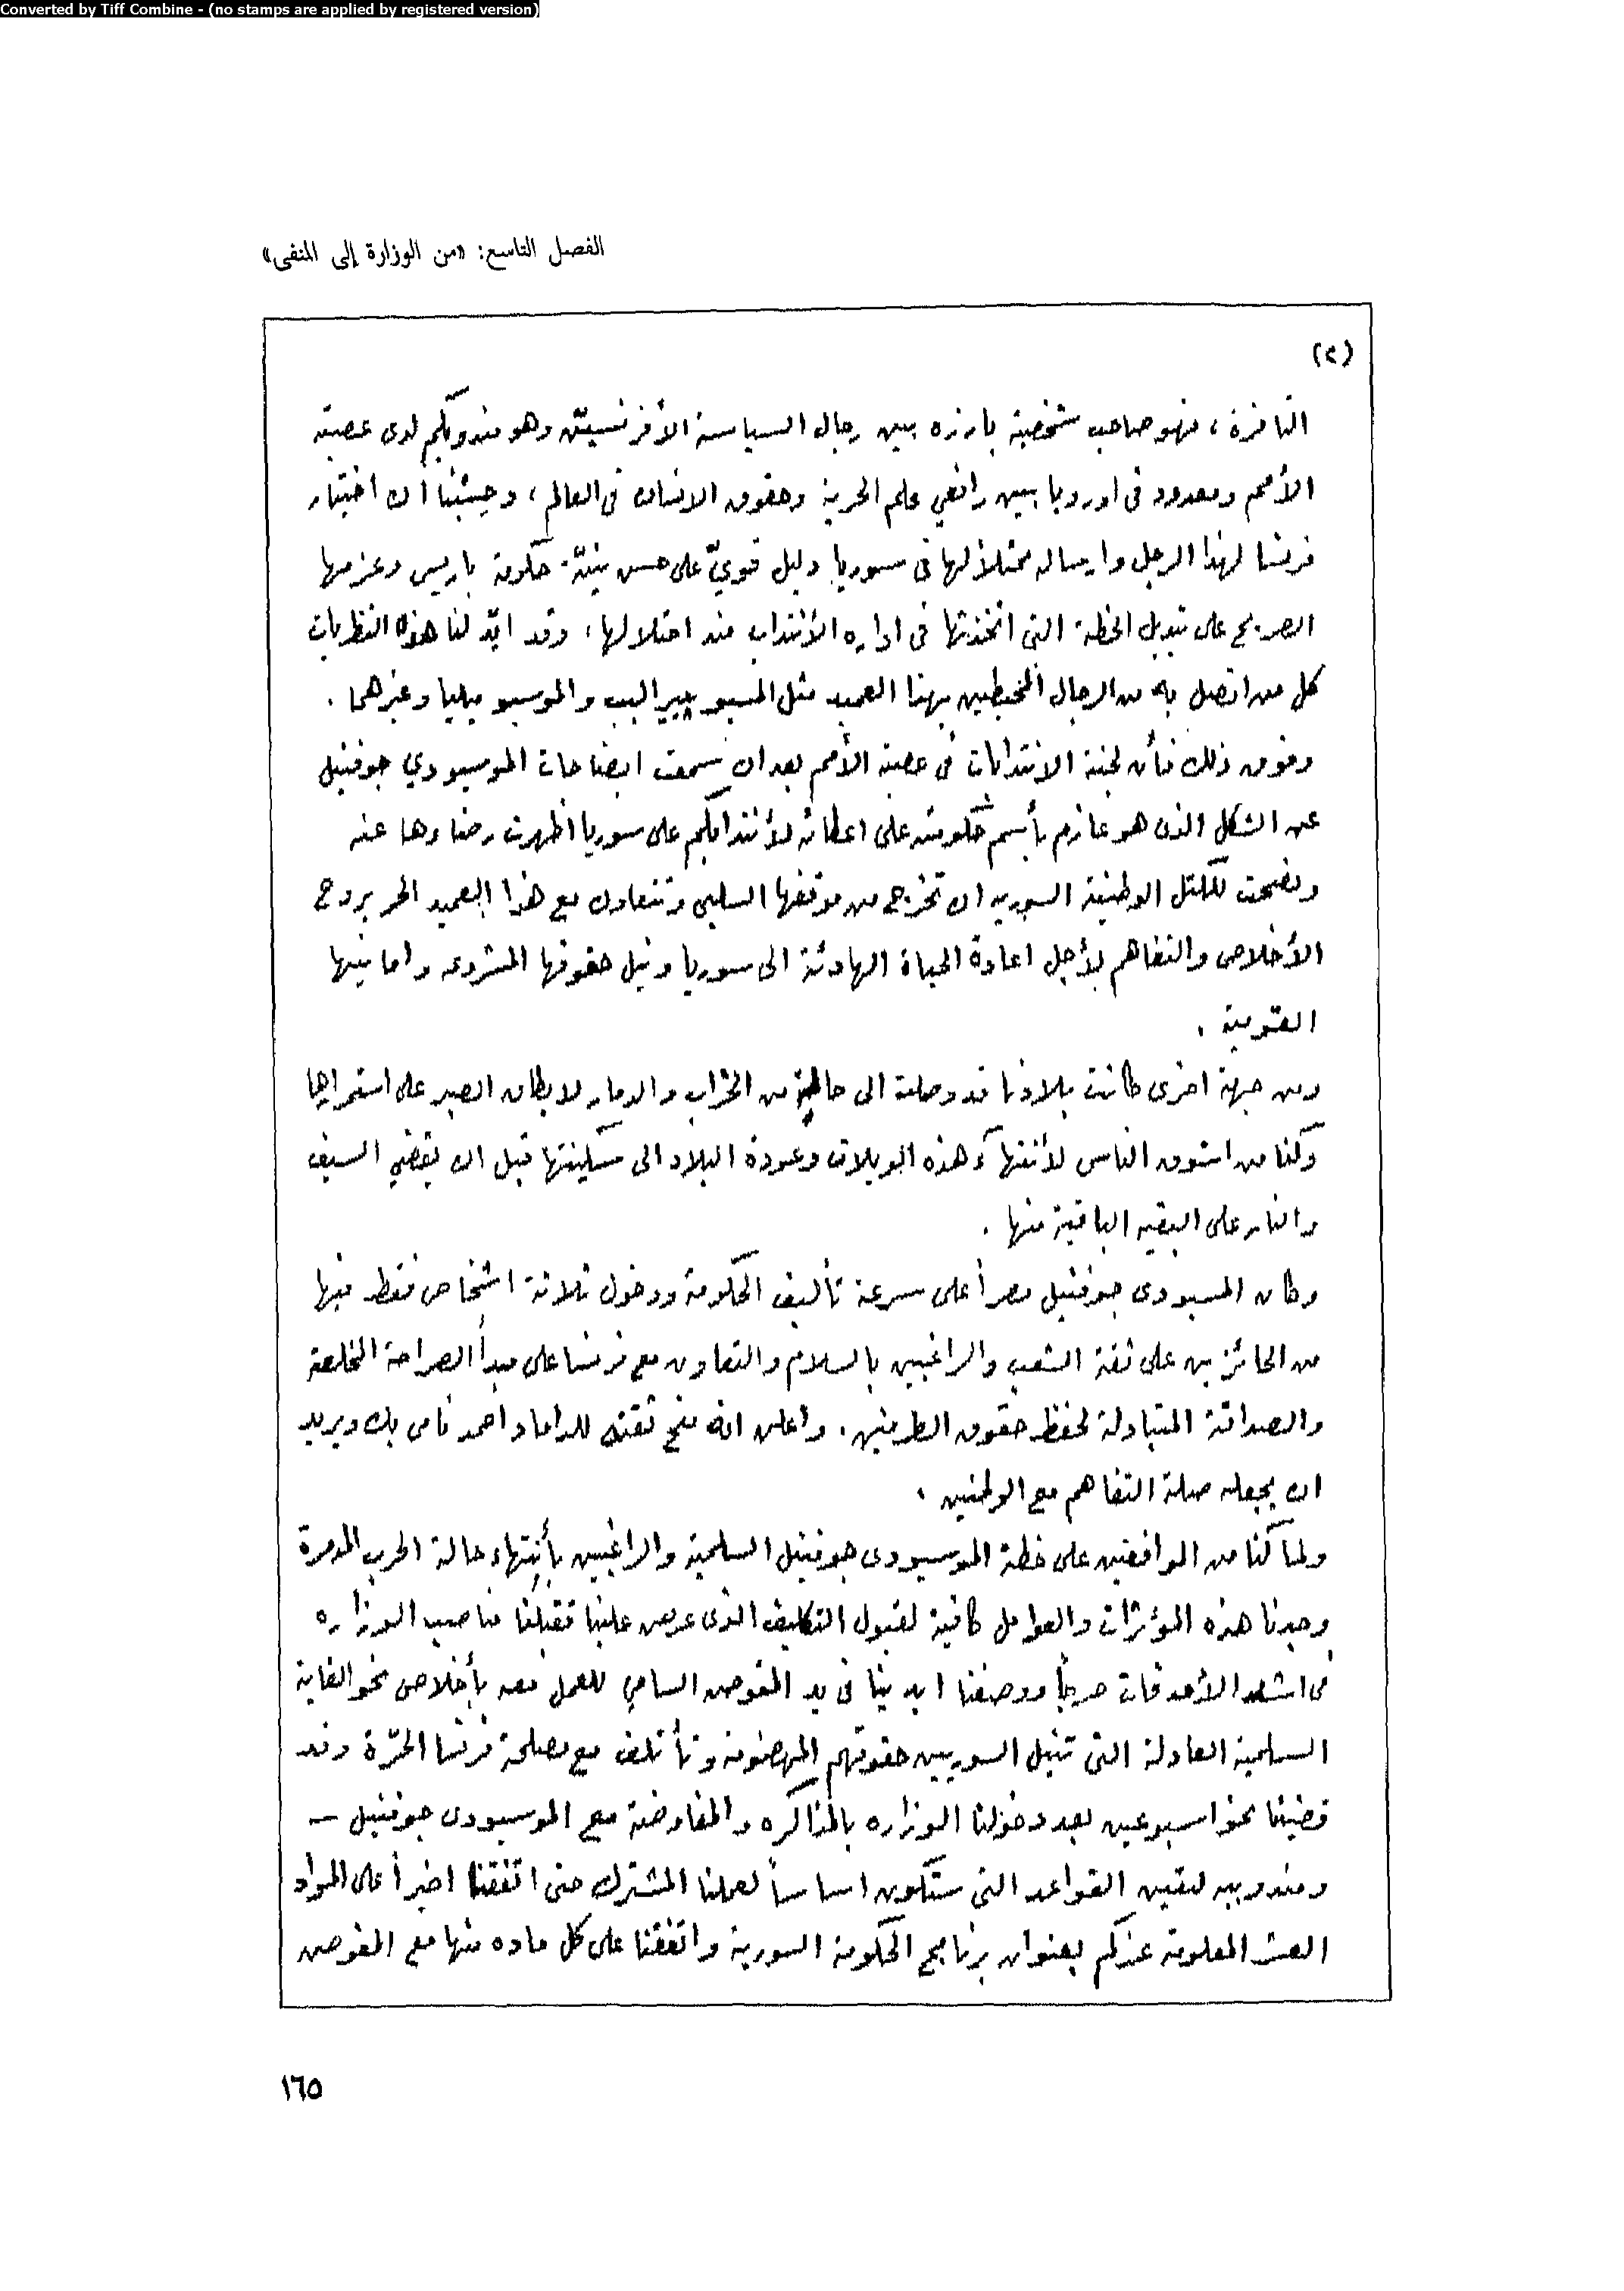 Converted by Tiff Combine - (no stamps are applied by registered version)
الفصل التاسع: «من الوزارة إلى المنفى»
(٢)
النافرة، فهو صاحب شخصية بارزه بين رجال السياسة الأفرنسيين وهو مندوبكم لدى عصبة
الأمم ومعدود في اوروبا بين رافعي علم الحرية وحقوق الانسان في العالم، وحيثنا ان اختيار
فرنسا لهذا الرجل وارساله ممثلاً لها في سوريا دليل قويّ على حسن نيّة حكومة باريس وعزمها
الصريح على تبديل الخطة التي اتخذتها في اداره الأنتداب منذ احتلالها، وقد ايّد لنا هذه النظريات
كل من اتصل به من الرجال المحيطين بهذا العميد مثل المسيو بيير اليب والموسيو ميليا وغيرهما.
وفوق ذلك فأن لجنة الانتدابات في عصبة الأمم بعد ان سمعت ايضاحات الموسيودي جوفنيل
عن الشكل الذى هو عازم بأسم حكومته على اعطائه لأنتدابكم على سوريا اظهرت رضاءها عنه
ونصحت للكتل الوطنية السوريه ان تخرج من موقفها السلبي وتتعاون مع هذا العميد الحر بروح
الأخلاص والتفاهم لأجل اعادة الحياة الهادئة الى سوريا ونيل حقوقها المشروعه وامانيها
القومية.
ومن جهة اخرى كانت بلادنا قد وصلت الى حالة من الخراب والدمار لا يطاق الصبر على استمرارها
وكنا من اشوق الناس لأنتهاء هذه الويلات وعودة البلاد الى سكينتها قبل ان يقضي السيف
والنار على البقيه الباقية منها.
وكان المسيودى جوفنيل مصراً على سرعة تأليف الحكومة ودخول ثلاثة اشخاص فقط فيها
من الحائزين على ثقة الشعب والراغبين بالسلام والتعاون مع فرنسا على مبدأ الصراحة المخلصة
والصداقة المتبادلة لحفظ حقوق الطرفين. واعلن انه منح ثقته للداماد احمد نامى بك ويريد
ان يجعله صلة التفاهم مع الوطنيين.
ولما كنا من الموافقين على خطة الموسيودى جوفنيل السلمية والراغبين بأنتهاء حالة الحرب المدمرة
وجدنا هذه المؤثرات والعوامل كافية لقبول التكليف الذى عرض علينا فقبلنا مناصب الوزاره
في اشد الأوقات حرجاً ووضعنا ايدينا في يد المفوض السامي للعمل معه بأخلاص نحو الغاية
السلمية العادلة التي تنيل السوريين حقوقهم المهضومة وتأتلف مع مصلحة فرنسا الحرّة وقد
قضينا نحو اسبوعين بعد دخولنا الوزاره بالمذاكره والمفاوضة مع الموسيودى جوفنيل –
ومندوبيه لتعيين القواعد التي ستكون اساساً لعملنا المشترك حتى اتفقنا اخيراً على المواد
العشر المعلومة عندكم بعنوان برنامج الحكومة السورية واتفقنا على كل ماده منها مع المفوض
١٦٥